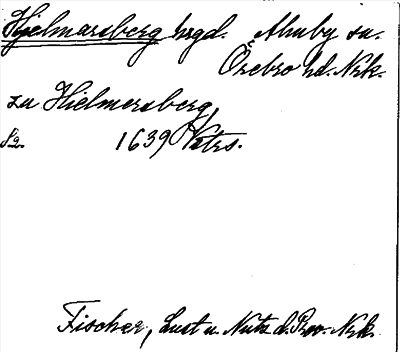 Hjelmarsberg hrgd. Almby sn.
Örebro hd. Nrk.
zu Hielmersberg,
1639 Vtrs.
Fischer, Lust u. Nutz d. Prov. Nrk.